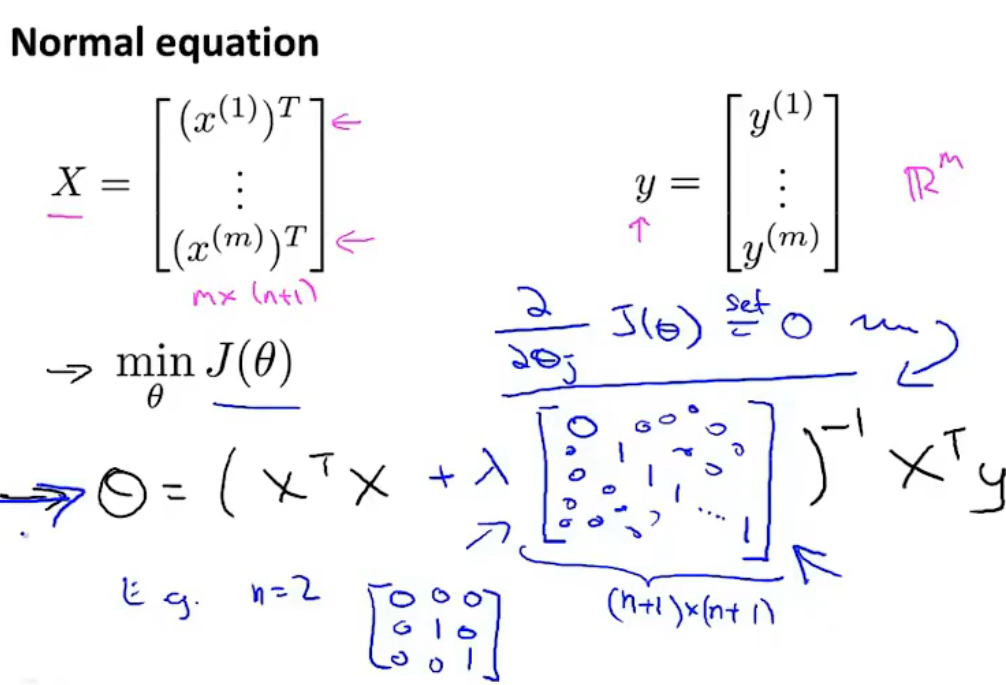 Normal equation
X = [ (x^(1))^T ⋮ (x^(m))^T ] ← ←
m × (n+1)
y = [ y^(1) ⋮ y^(m) ] ℝ^m
↑
∂/∂θ_j J(θ) set = 0
→ min_θ J(θ)
→ Θ = ( X^T X + λ [ 0 0 0 0 0 1 1 1 .... 1 ] )^-1 X^T y
(n+1)×(n+1)
E.g. n=2 [ 0 0 0
0 1 0
0 0 1 ]